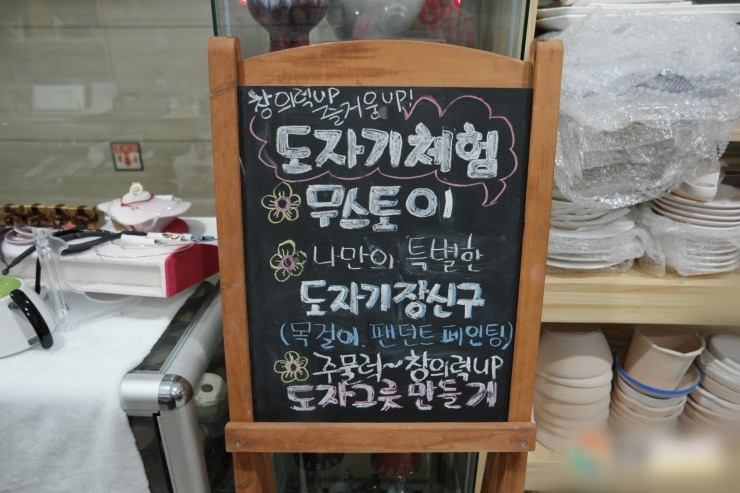 창의력UP 즐거움UP!
도자기체험
무스토이
나만의 특별한
도자기장신구
(목걸이. 팬던트 페인팅)
주물럭~ 창의력UP
도자그릇 만들기